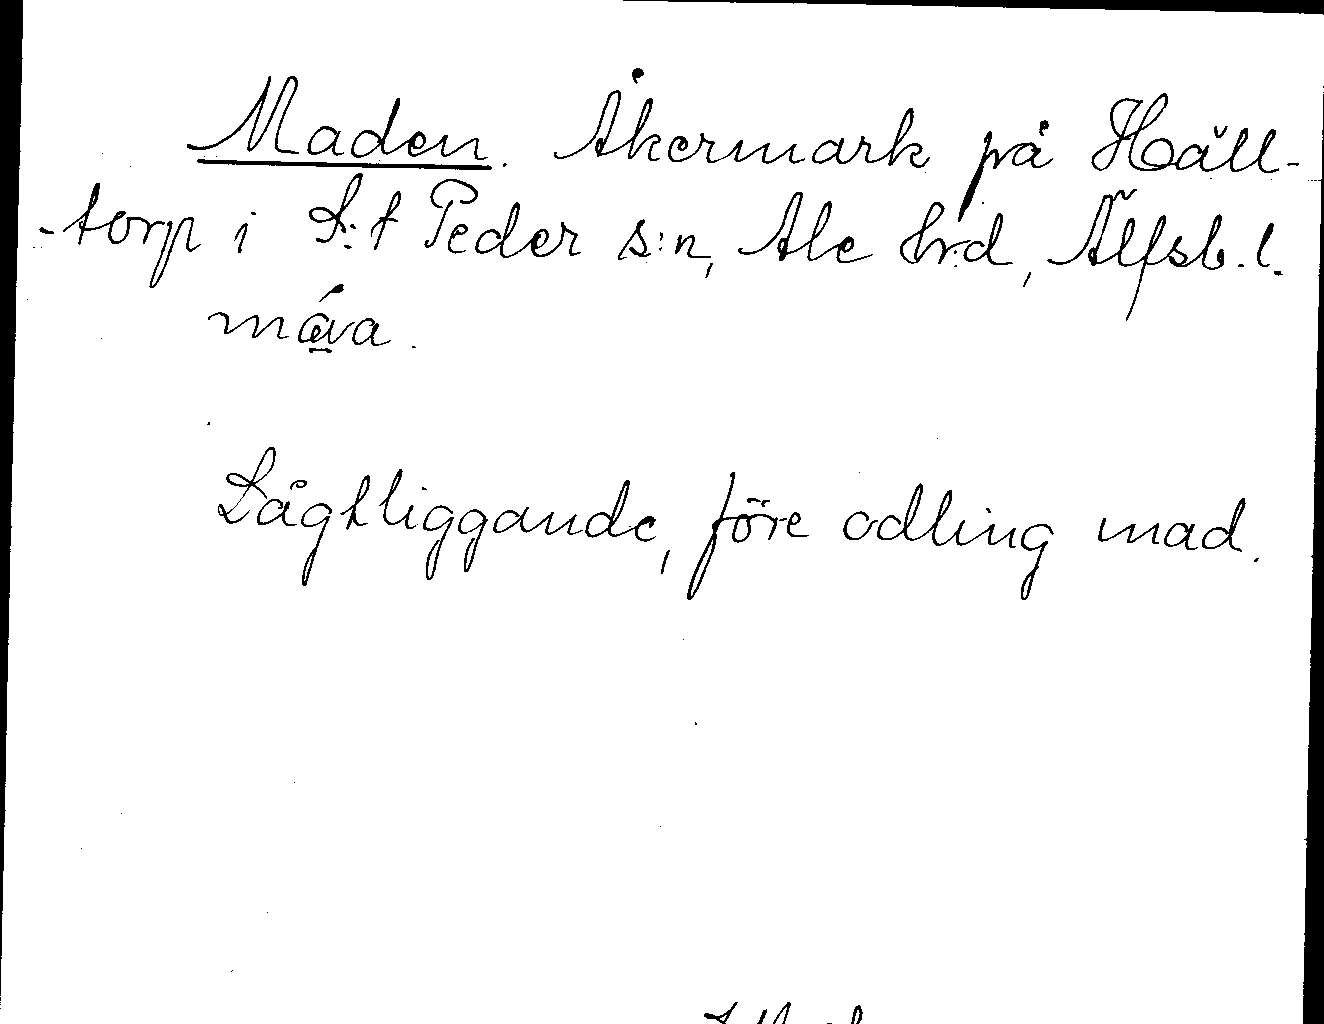 Maden. Åkermark på Häll-
-torp i S:t Peder s:n, Ale hrd, Älfsb. l.
máva.
Lågtliggande, före odling mad.